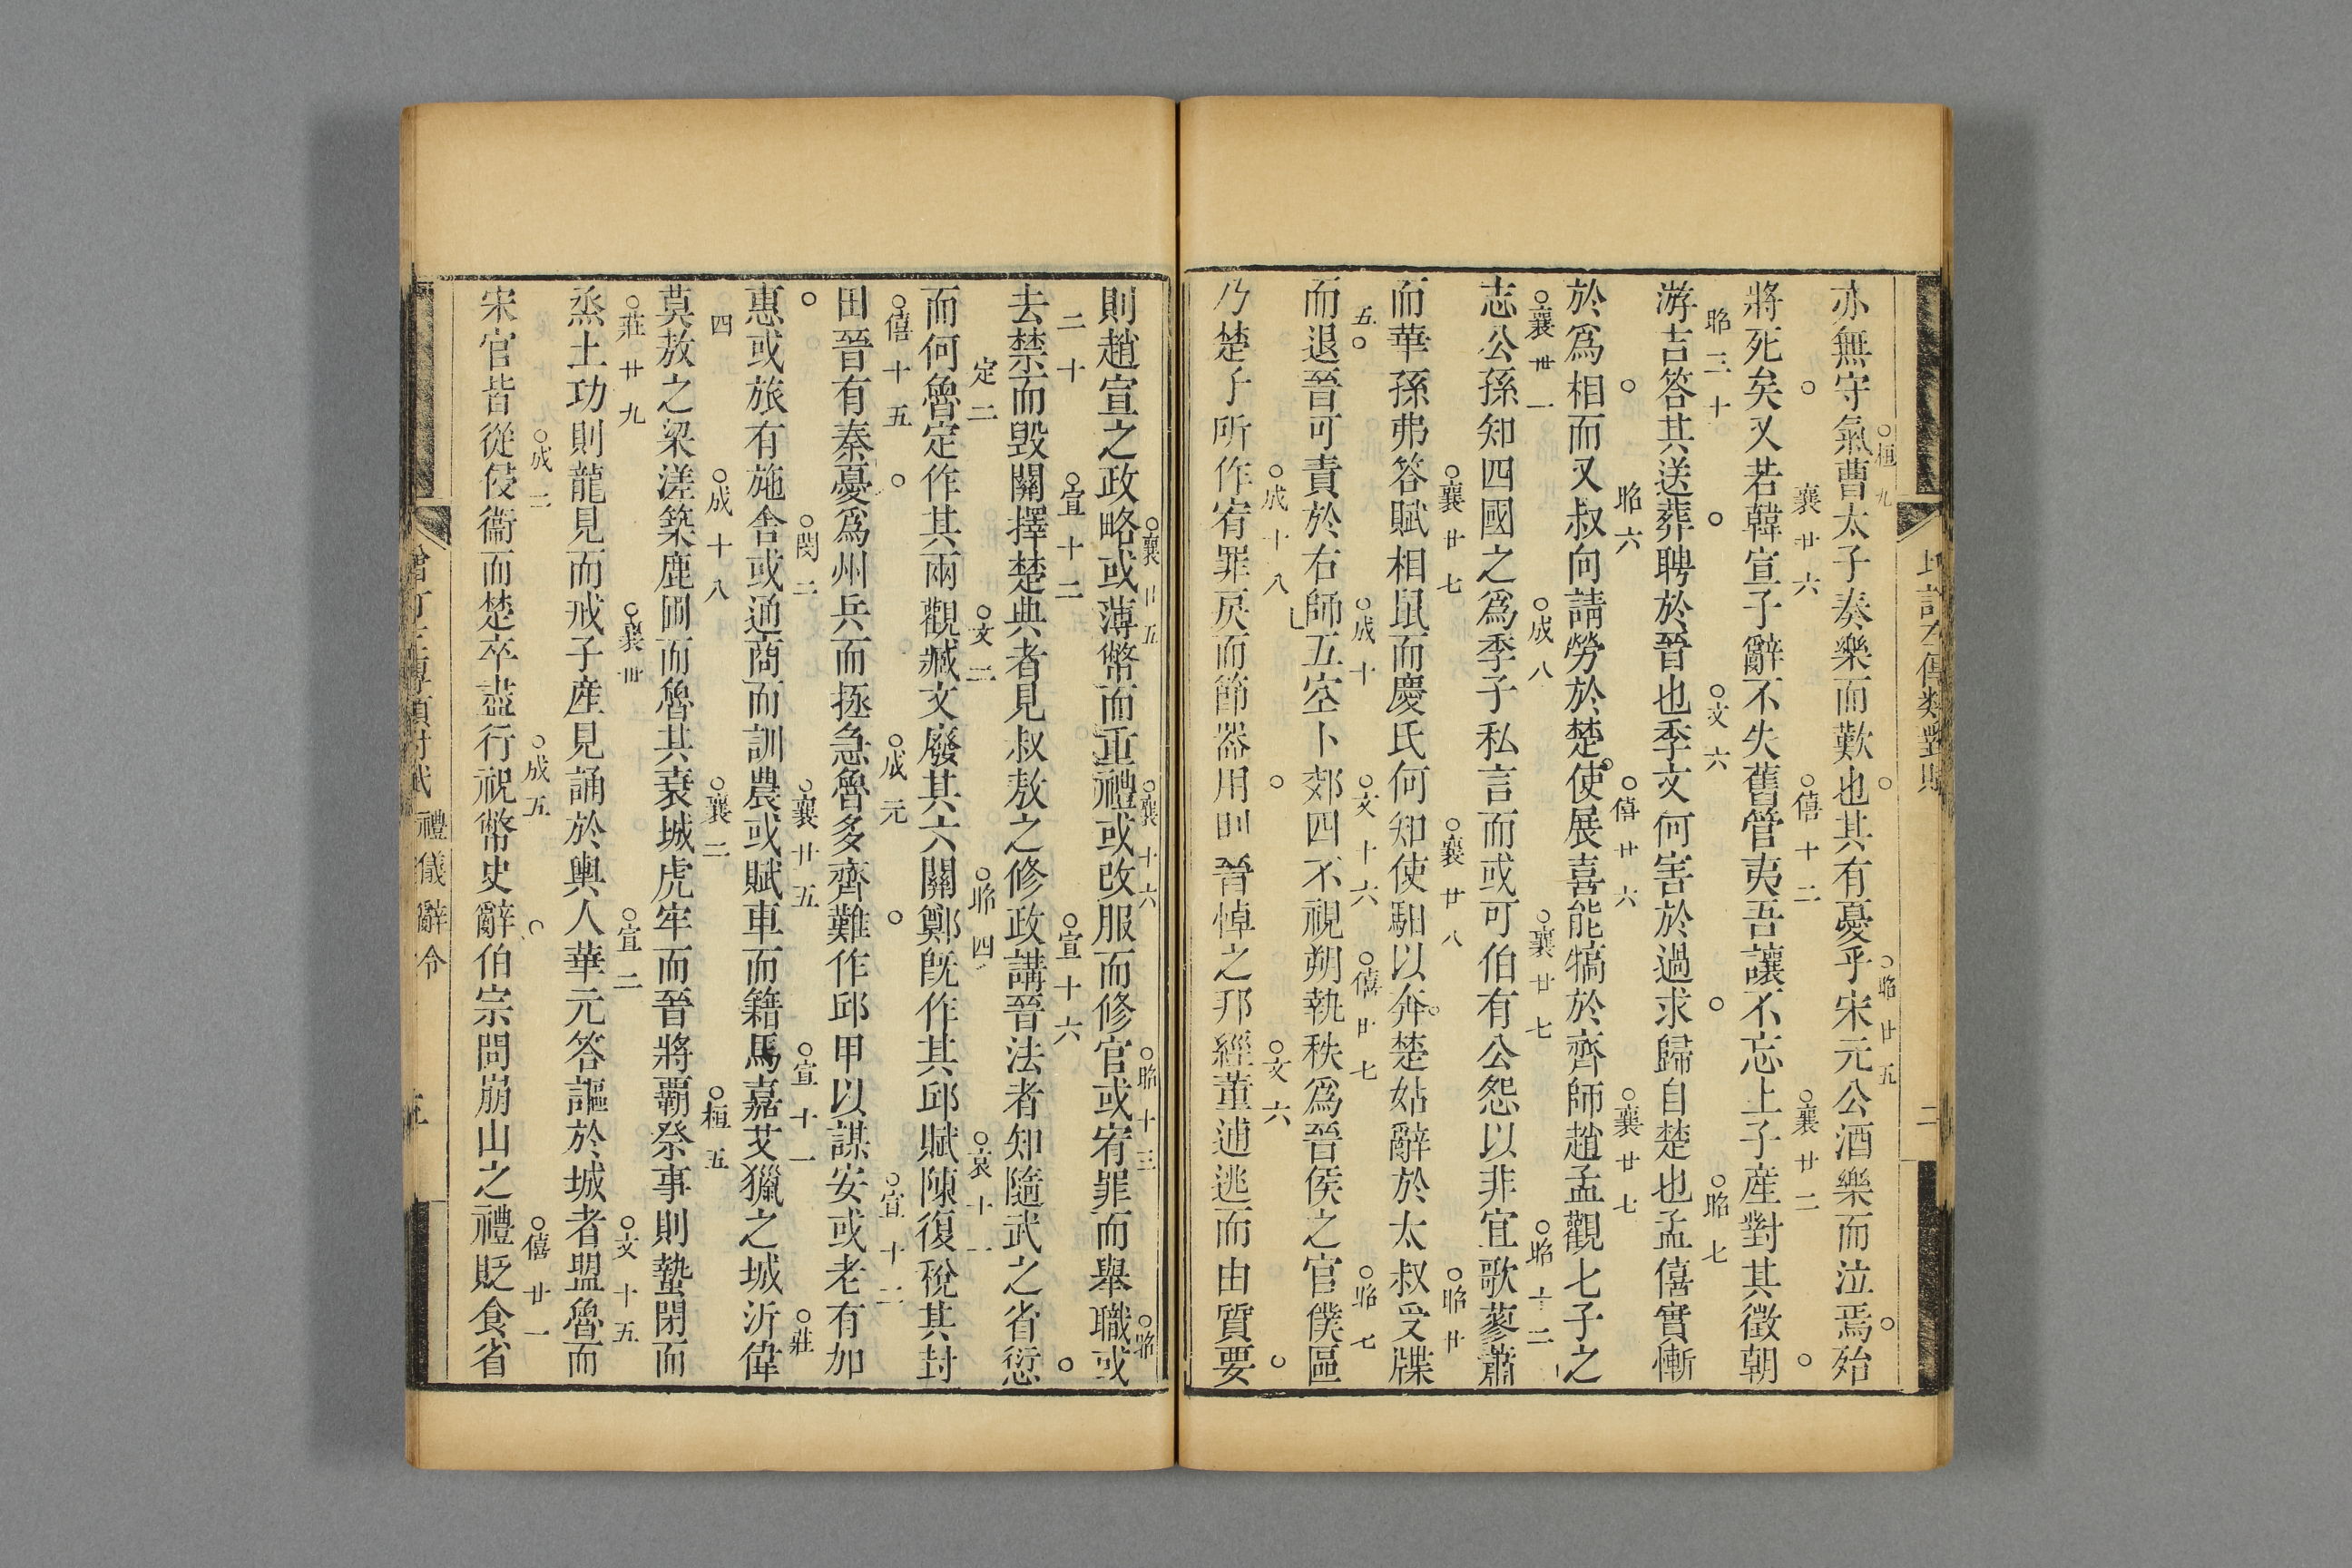 亦無守氣曹太子奏樂而歎也其有憂乎宋元公酒樂而泣焉殆
桓九
昭廿五
將死矣又若韓宣子辭不失舊管夷吾讓不忘上子産對其徵朝
襄廿六
僖十二
襄廿二
游吉答其送葬聘於晉也季文何害於過求歸自楚也孟僖實慚
昭三十
文六
昭七
於爲相而又叔向請勞於楚使展喜能犒於齊師趙孟觀七子之
昭六
僖廿六
襄廿七
志公孫知四國之爲季子私言而或可伯有公怨以非宜歌蓼蕭
襄卅一
成八
襄廿七
昭十二
而華孫弗答賦相鼠而慶氏何知使馹以奔楚姑辭於太叔受牒
襄廿七
襄廿八
昭廿
而退晉可責於右師五空卜郊四不視朔執秩爲晉侯之官僕區
五
成十
文十六
僖廿七
昭七
乃楚子所作宥罪戾而節器用則晉悼之邦經董逋逃而由質要
成十八
文六
則趙宣之政略或薄幣而重禮或改服而修官或宥罪而舉職或
襄廿五
襄十六
昭十三
昭
去禁而毀關擇楚典者見叔敖之修政講晉法者知隨武之省愆
二十
宣十二
宣十六
而何魯定作其兩觀臧文廢其六關鄭旣作其邱賦陳復稅其封
定二
文二
昭四
哀十一
田晉有秦憂爲州兵而拯急魯多齊難作邱甲以謀安或老有加
僖十五
成元
宣十二
惠或旅有施舍或通商而訓農或賦車而籍馬嘉艾獵之城沂偉
閔二
襄廿五
宣十一
莊
莫敖之梁溠築鹿囿而魯其衰城虎牢而晉將霸祭事則蟄閉而
四
成十八
襄二
桓五
烝土功則龍見而戒子産見誦於輿人華元答謳於城者盟魯而
莊廿九
襄卅
宣二
文十五
宋官皆從侵衞而楚卒盡行祝幣史辭伯宗問崩山之禮貶食省
成二
成五
僖廿一
禮儀 辭令